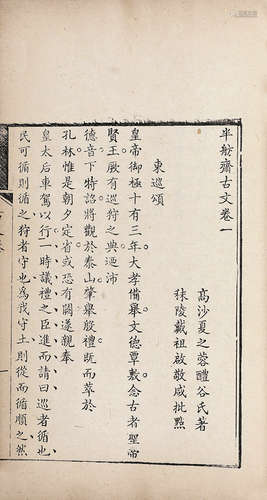 半舫齋古文卷一
高沙夏之蓉醴谷氏著
秣陵戴祖啟敬咸批點
東巡頌
皇帝御極十有三年大孝備舉文德覃敷念古者聖帝
賢王厥有巡狩之典迺沛
德音下特詔將觀於泰山肇舉殷禮既而萃於
孔林惟是朝夕定省或恐有闕遂親奉
皇太后車駕以行一時議禮之臣進而請曰巡者循也
民可循則循之狩者守也為我守土則從而循順之然